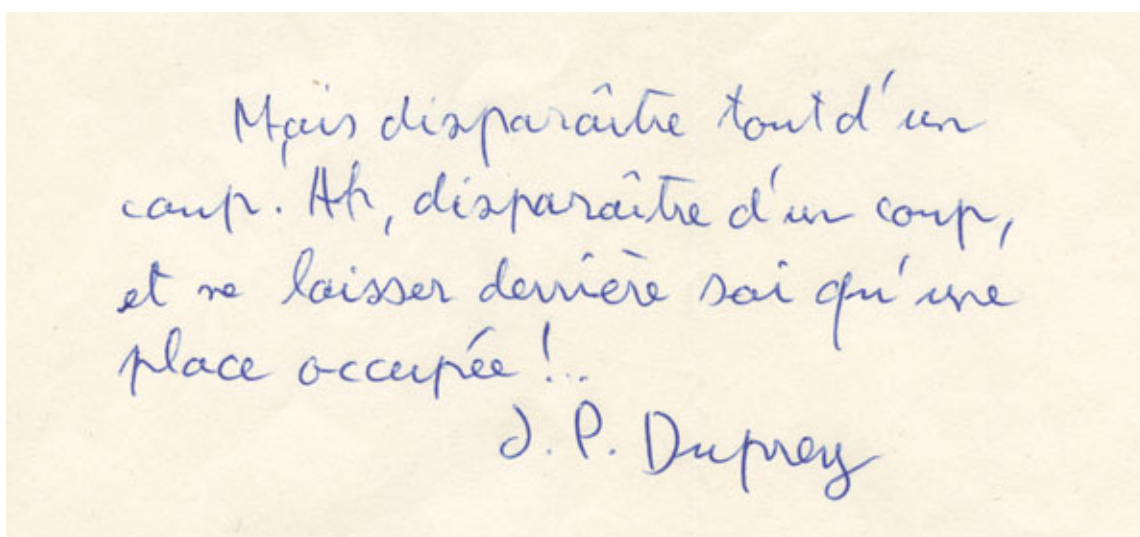 Mais disparaître tout d'un
coup. Ah, disparaître d'un coup,
et ne laisser derrière soi qu'une
place occupée !..
J. P. Duprey